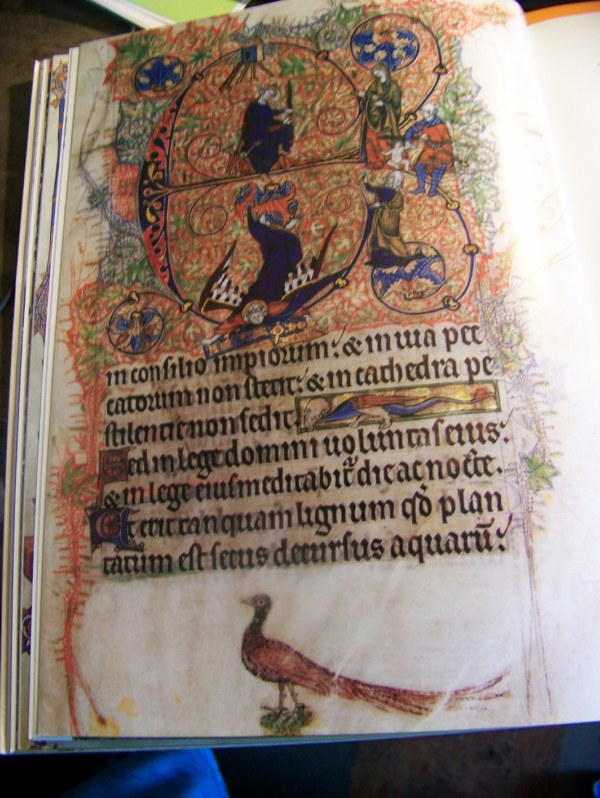 in consilio impiorum: & in uia pec
catorum non stetit: & in cathedra pe
stilentie non sedit.
Sed in lege domini uoluntas eius:
& in lege eius meditabit̉ die ac nocte.
Et erit tanquam lignum qd̕ plan
tatum est secus decursus aquarū: